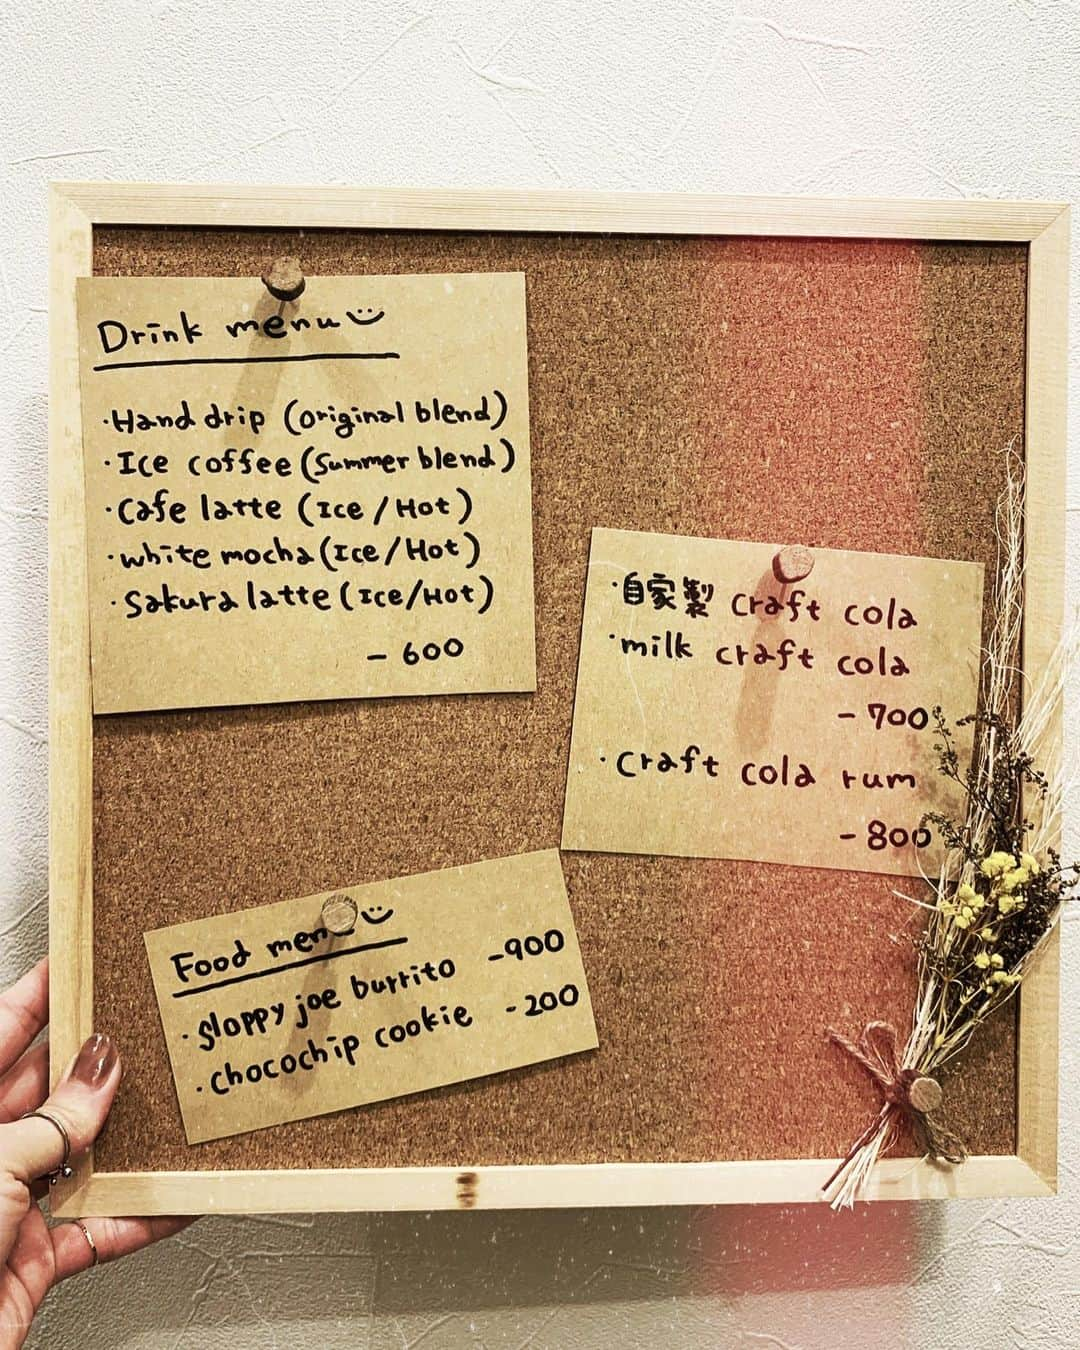 Drink menu
・Hand drip (original blend)
・Ice coffee (Summer blend)
・Cafe latte (Ice / Hot)
・white mocha (Ice / Hot)
・Sakura latte (Ice/Hot)
- 600
・自家製 craft cola
・milk craft cola
- 700
・Craft cola rum
- 800
Food menu
・Sloppy joe burrito -900
・Chocochip cookie -200